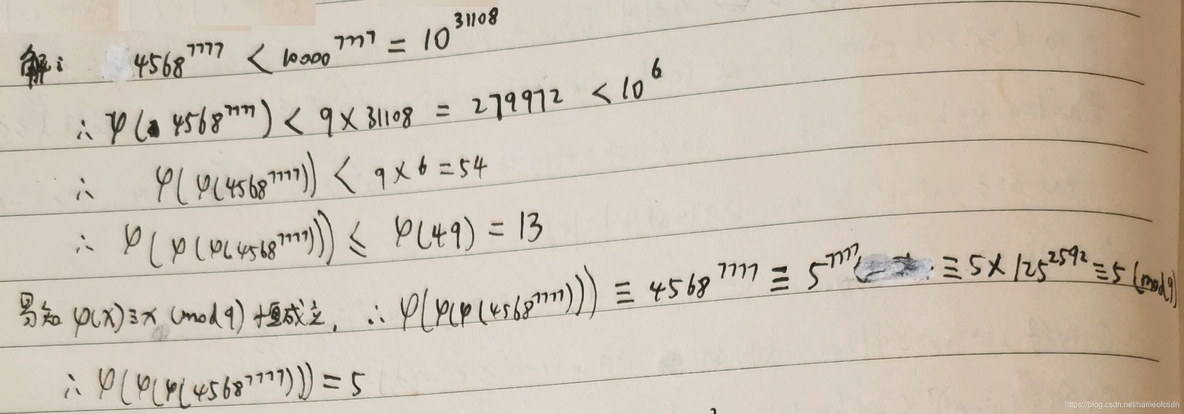 解: 4568^7777 < 10000^7777 = 10^31108
∴ φ(4568^7777) < 9×31108 = 279972 < 10^6
∴ φ(φ(4568^7777)) < 9×6=54
∴ φ(φ(φ(4568^7777))) ≤ φ(49) = 13
易知 φ(x)≡x (mod 9) 恒成立, ∴ φ(φ(φ(4568^7777))) ≡ 4568^7777 ≡ 5^7777 ≡ 5×125^2592 ≡ 5 (mod 9)
∴ φ(φ(φ(4568^7777))) = 5
https://blog.csdn.net/nameofcsdn